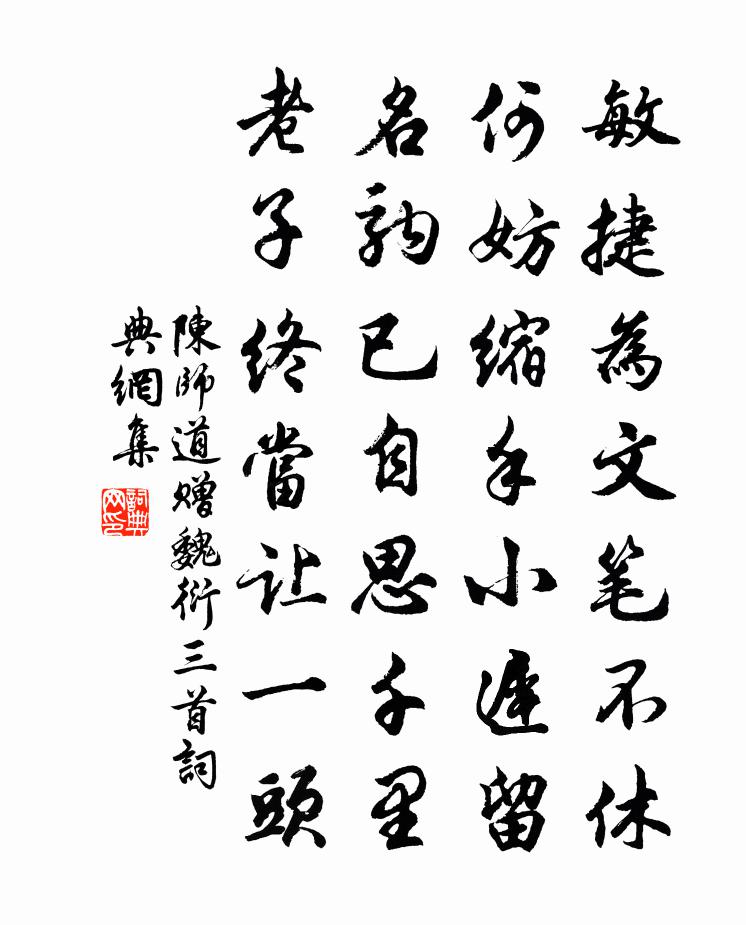 敏捷為文笔不休
何妨縮手小遲留
名駒已自思千里
老子終當让一頭
陳師道贈魏衍三首詞
典網集
詞典网印